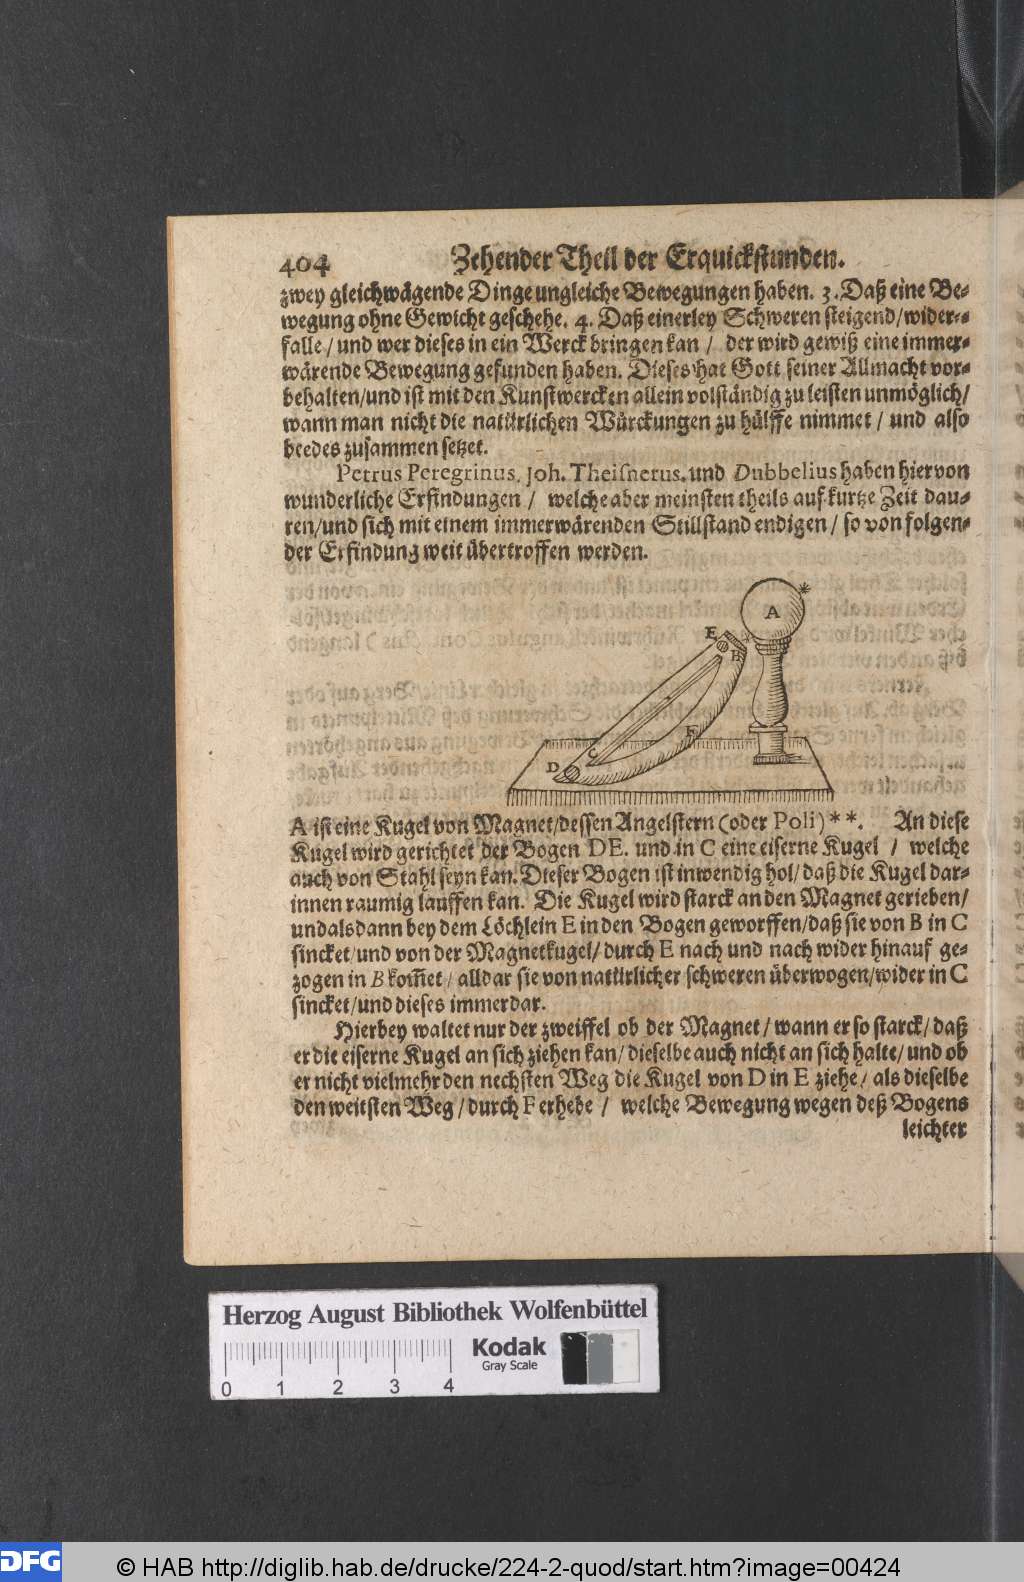 404 Zehender Theil der Erquickstunden.
zwey gleichwägende Dinge ungleiche Bewegungen haben. 3. Daß eine Be-
wegung ohne Gewicht geschehe. 4. Daß einerley Schweren steigend/wider-
falle/und wer dieses in ein Werck bringen kan / der wird gewiß eine immer-
wärende Bewegung gefunden haben. Dieses hat Gott seiner Allmacht vor-
behalten/und ist mit den Kunstwercken allein volständig zu leisten unmöglich/
wann man nicht die natürlichen Würckungen zu hülffe nimmet/ und also
beedes zusammen setzet.
Petrus Peregrinus, Joh. Theisnerus, und Dubbelius haben hiervon
wunderliche Erfindungen / welche aber meinsten theils auf kurtze Zeit dau-
ren/und sich mit einem immerwärenden Stillstand endigen/ so von folgen-
der Erfindung weit übertroffen werden.
A
E
B
F
C
D
A ist eine Kugel von Magnet/dessen Angelstern (oder Poli) **. An diese
Kugel wird gerichtet der Bogen DE. und in C eine eiserne Kugel / welche
auch von Stahl seyn kan. Dieser Bogen ist inwendig hol/daß die Kugel dar-
innen raumig lauffen kan. Die Kugel wird starck an den Magnet gerieben/
und alsdann bey dem Löchlein E in den Bogen geworffen/daß sie von B in C
sincket/und von der Magnetkugel/durch E nach und nach wider hinauf ge-
zogen in B kom̃et/alldar sie von natürlicher schweren überwogen/wider in C
sincket/und dieses immerdar.
Hierbey waltet nur der zweiffel ob der Magnet/wann er so starck/daß
er die eiserne Kugel an sich ziehen kan/dieselbe auch nicht an sich halte/und ob
er nicht vielmehr den nechsten Weg die Kugel von D in E ziehe/als dieselbe
den weitsten Weg/durch F erhebe / welche Bewegung wegen deß Bogens
leichter
Herzog August Bibliothek Wolfenbüttel
Kodak
Gray Scale
0 1 2 3 4
DFG © HAB http://diglib.hab.de/drucke/224-2-quod/start.htm?image=00424